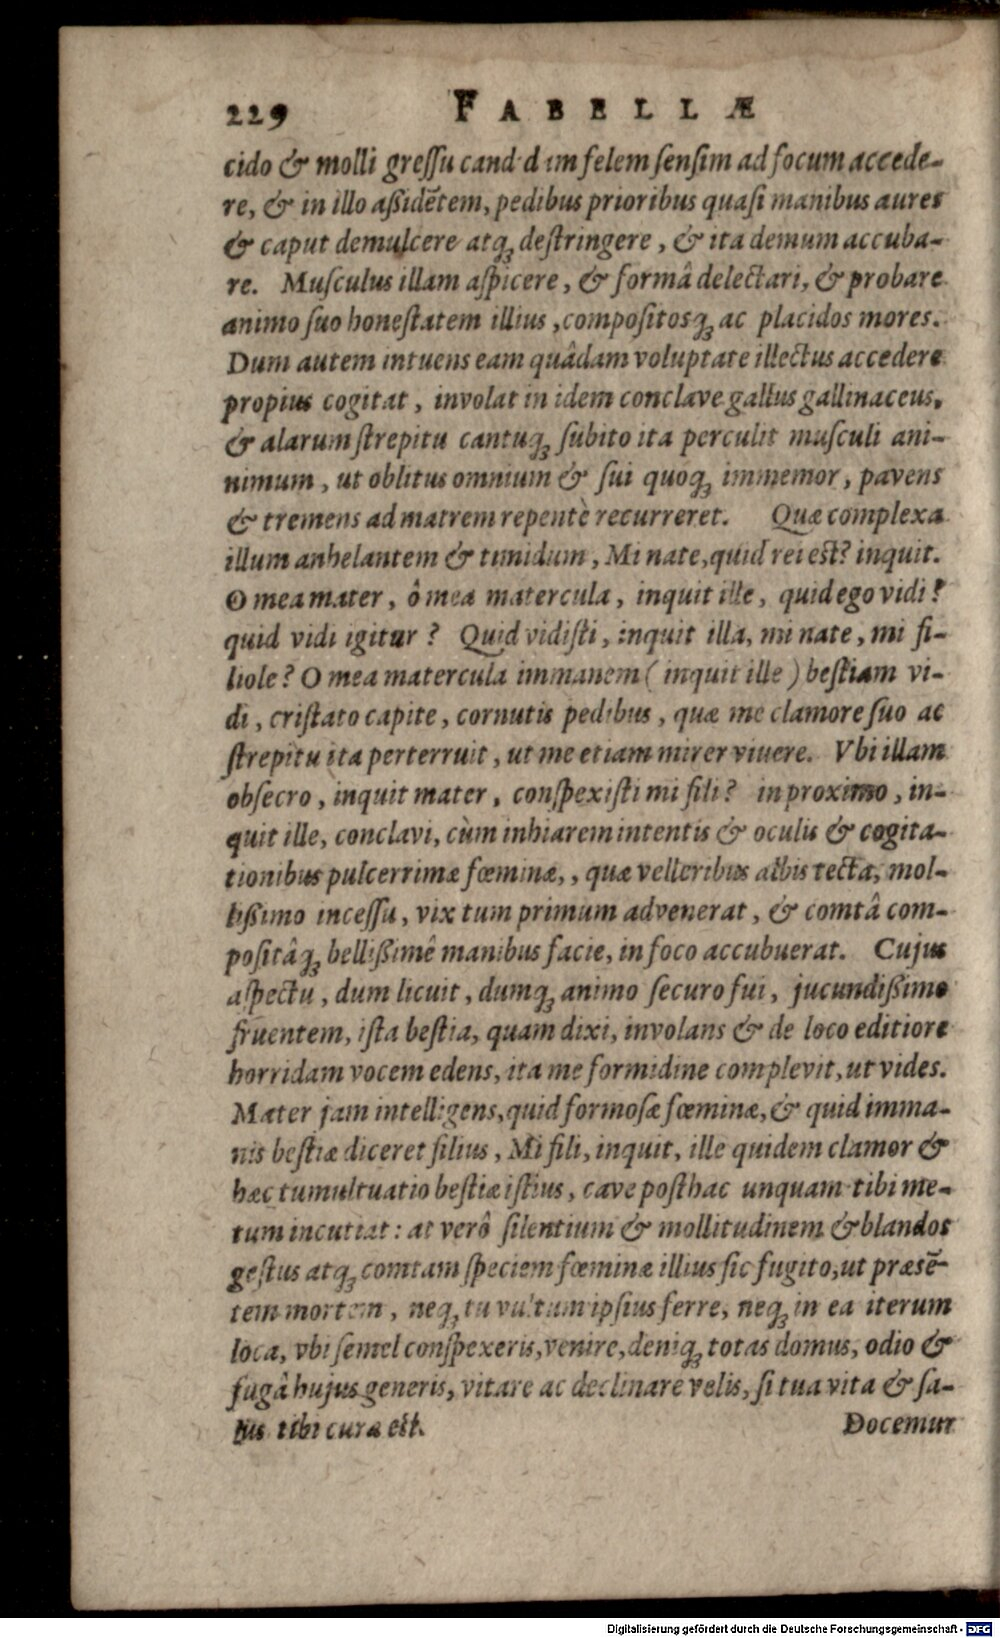 229 FABELLÆ
cido & molli greſſu cand d im felem ſenſim ad focum accede-
re, & in illo aßidētem, pedibus prioribus quaſi manibus aures
& caput demulcere atq; deſtringere, & ita demum accuba-
re. Muſculus illam aſpicere, & formâ delectari, & probare
animo ſuo honeſtatem illius, compoſitosq; ac placidos mores.
Dum autem intuens eam quâdam voluptate illectus accedere
propius cogitat, involat in idem conclave gallus gallinaceus,
& alarum ſtrepitu cantuq; ſubito ita perculit muſculi ani-
nimum, ut oblitus omnium & ſui quoq; immemor, pavens
& tremens ad matrem repentè recurreret. Quæ complexa
illum anhelantem & timidum, Mi nate, quid rei est? inquit.
O mea mater, ô mea matercula, inquit ille, quid ego vidi?
quid vidi igitur? Quid vidiſti, inquit illa, mi nate, mi fi-
liole? O mea matercula immanem (inquit ille) beſtiam vi-
di, criſtato capite, cornutis pedibus, quæ me clamore ſuo ac
ſtrepitu ita perterruit, ut me etiam mirer vivere. Vbi illam
obſecro, inquit mater, conſpexiſti mi fili? in proximo, in-
quit ille, conclavi, cùm inhiarem intentis & oculis & cogita-
tionibus pulcerrimæ fœminæ,, quæ velleribus albis tecta, mol-
lißimo inceſſu, vix tum primum advenerat, & comtâ com-
poſitâq; bellißimê manibus facie, in foco accubuerat. Cujus
aſpectu, dum licuit, dumq; animo ſecuro fui, jucundißimo
fruentem, iſta beſtia, quam dixi, involans & de loco editiore
horridam vocem edens, ita me formidine complevit, ut vides.
Mater jam intelligens, quid formoſæ fœminæ, & quid imma-
nis beſtiæ diceret filius, Mi fili, inquit, ille quidem clamor &
hæc tumultuatio beſtiæ iſtius, cave poſthac unquam tibi me-
tum incutiat: at verô ſilentium & mollitudinem & blandos
geſtus atq; comtam ſpeciem fœminæ illius ſic fugito, ut præsē-
tem mortem, neq; tu vultum ipſius ferre, neq; in ea iterum
loca, vbi ſemel conſpexeris, venire, deniq; totas domus, odio &
fugâ hujus generis, vitare ac declinare velis, ſi tua vita & ſa-
lus tibi curæ est.
Docemur
Digitalisierung gefördert durch die Deutsche Forschungsgemeinschaft - DFG